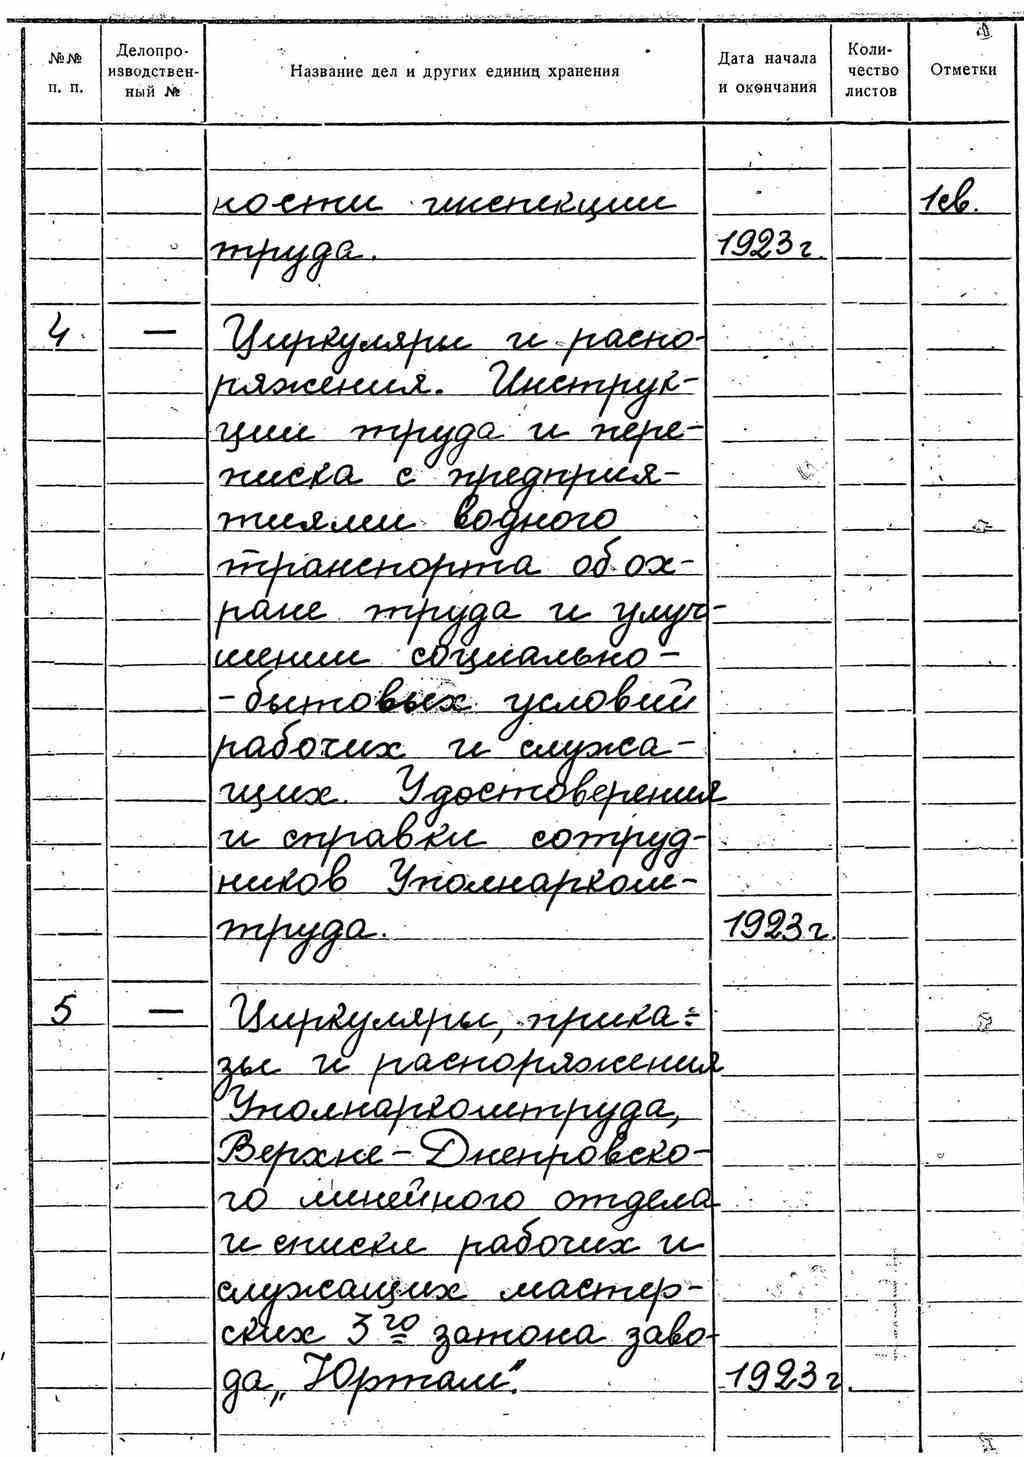 №№ п. п.
Делопроизводственный №
Название дел и других единиц хранения
Дата начала и окончания
Количество листов
Отметки
ности инспекции 1св.
труда. 1923 г.
4. — Циркуляры и распо-
ряжения. Инструк-
ции труда и пере-
писка с предприя-
тиями водного
транспорта об ох-
ране труда и улуч-
шении социально-
-бытовых условий
рабочих и служа-
щих. Удостоверения
и справки сотруд-
ников Уполнарком-
труда. 1923 г.
5 — Циркуляры, прика-
зы и распоряжения
Уполнаркомтруда,
Верхне-Днепровско-
го линейного отдела
и списки рабочих и
служащих мастер-
ских 3го затона заво-
да „Юртам". 1923 г.